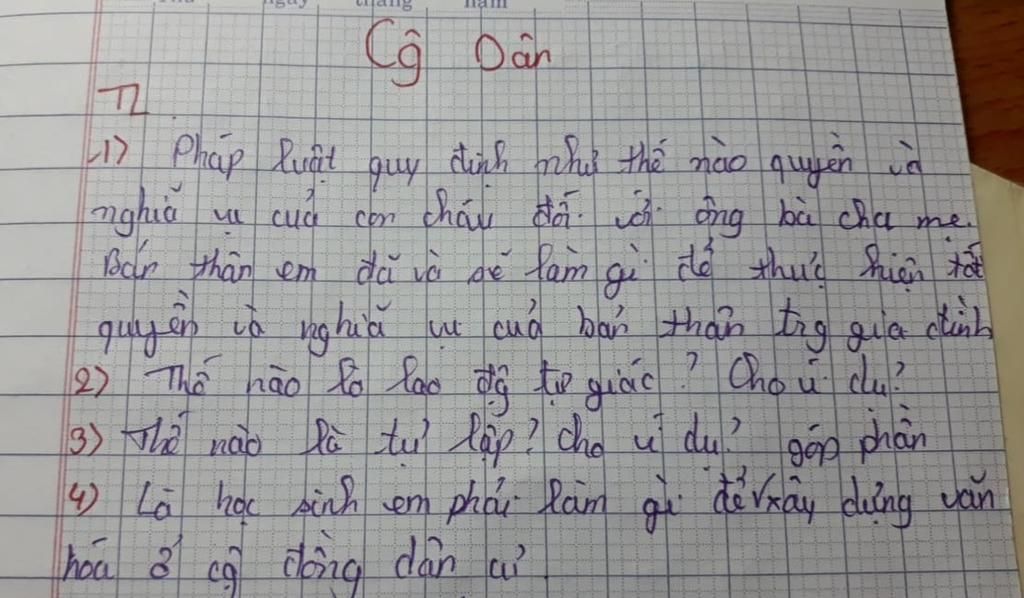 ngày tháng năm
Cg Dân
TL
1) Pháp luật quy định như thế nào quyền và
nghĩa vụ của con cháu đối với ông bà cha mẹ.
Bản thân em đã và sẽ làm gì để thức hiện tốt
quyền và nghĩa vụ của bản thân trg gia đình
2) Thế nào là lao đg tự giác? Cho ví dụ?
3) Thế nào là tự lập? cho ví dụ?
góp phần
4) Là học sinh em phải làm gì để √ xây dựng văn
hóa ở cg đồng dân cư